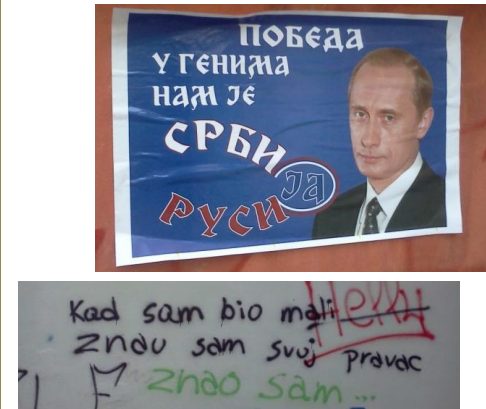 ПОБЕДА
У ГЕНИМА
НАМ ЈЕ
СРБИЈА
РУСИЈА
Kad sam bio mali
Helly
znau sam svoj pravac
znao sam...